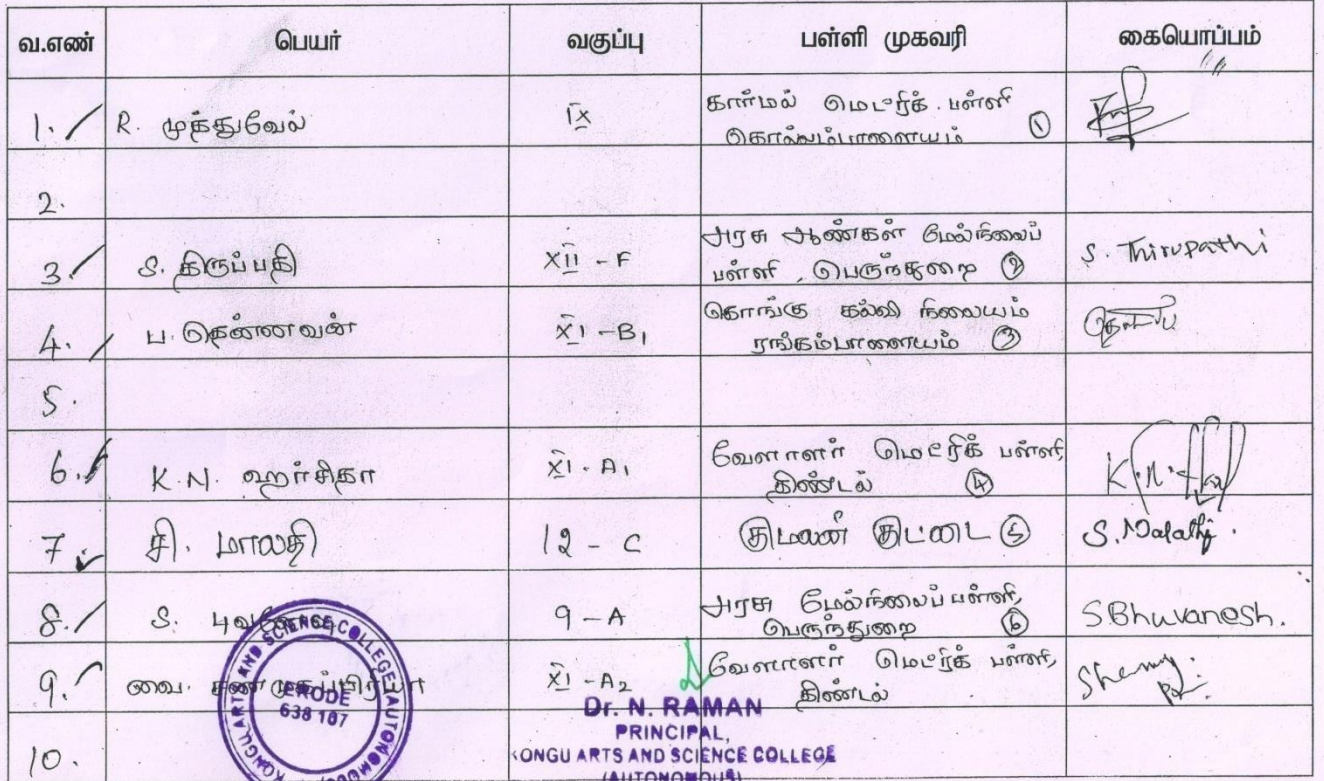 வ.எண் பெயர் வகுப்பு பள்ளி முகவரி கையொப்பம்
1. R. முத்துவேல் IX கார்மல் மெட்ரிக் பள்ளி
கொல்லம்பாளையம் ①
2.
3. S. திருப்பதி XII - F அரசு ஆண்கள் மேல்நிலைப்
பள்ளி, பெருந்துறை ② S. Thirupathi
4. ப. தென்னவன் XI - B1 கொங்கு கல்வி நிலையம்
ரங்கம்பாளையம் ③
5.
6. K.N. ஹர்சிதா XI - A1 வேளாளர் மெட்ரிக் பள்ளி,
திண்டல் ④
7. சி. மாலதி 12 - C ⑤ S. Malathi.
8. S. 9 - A அரசு மேல்நிலைப்பள்ளி,
பெருந்துறை ⑥ S Bhuvanesh.
9. வை. சண்முகப்பிரியா XI - A2 வேளாளர் மெட்ரிக் பள்ளி,
திண்டல்
10.
KONGU ARTS AND SCIENCE COLLEGE (AUTONOMOUS)
ERODE
638 107
Dr. N. RAMAN
PRINCIPAL,
KONGU ARTS AND SCIENCE COLLEGE
(AUTONOMOUS)